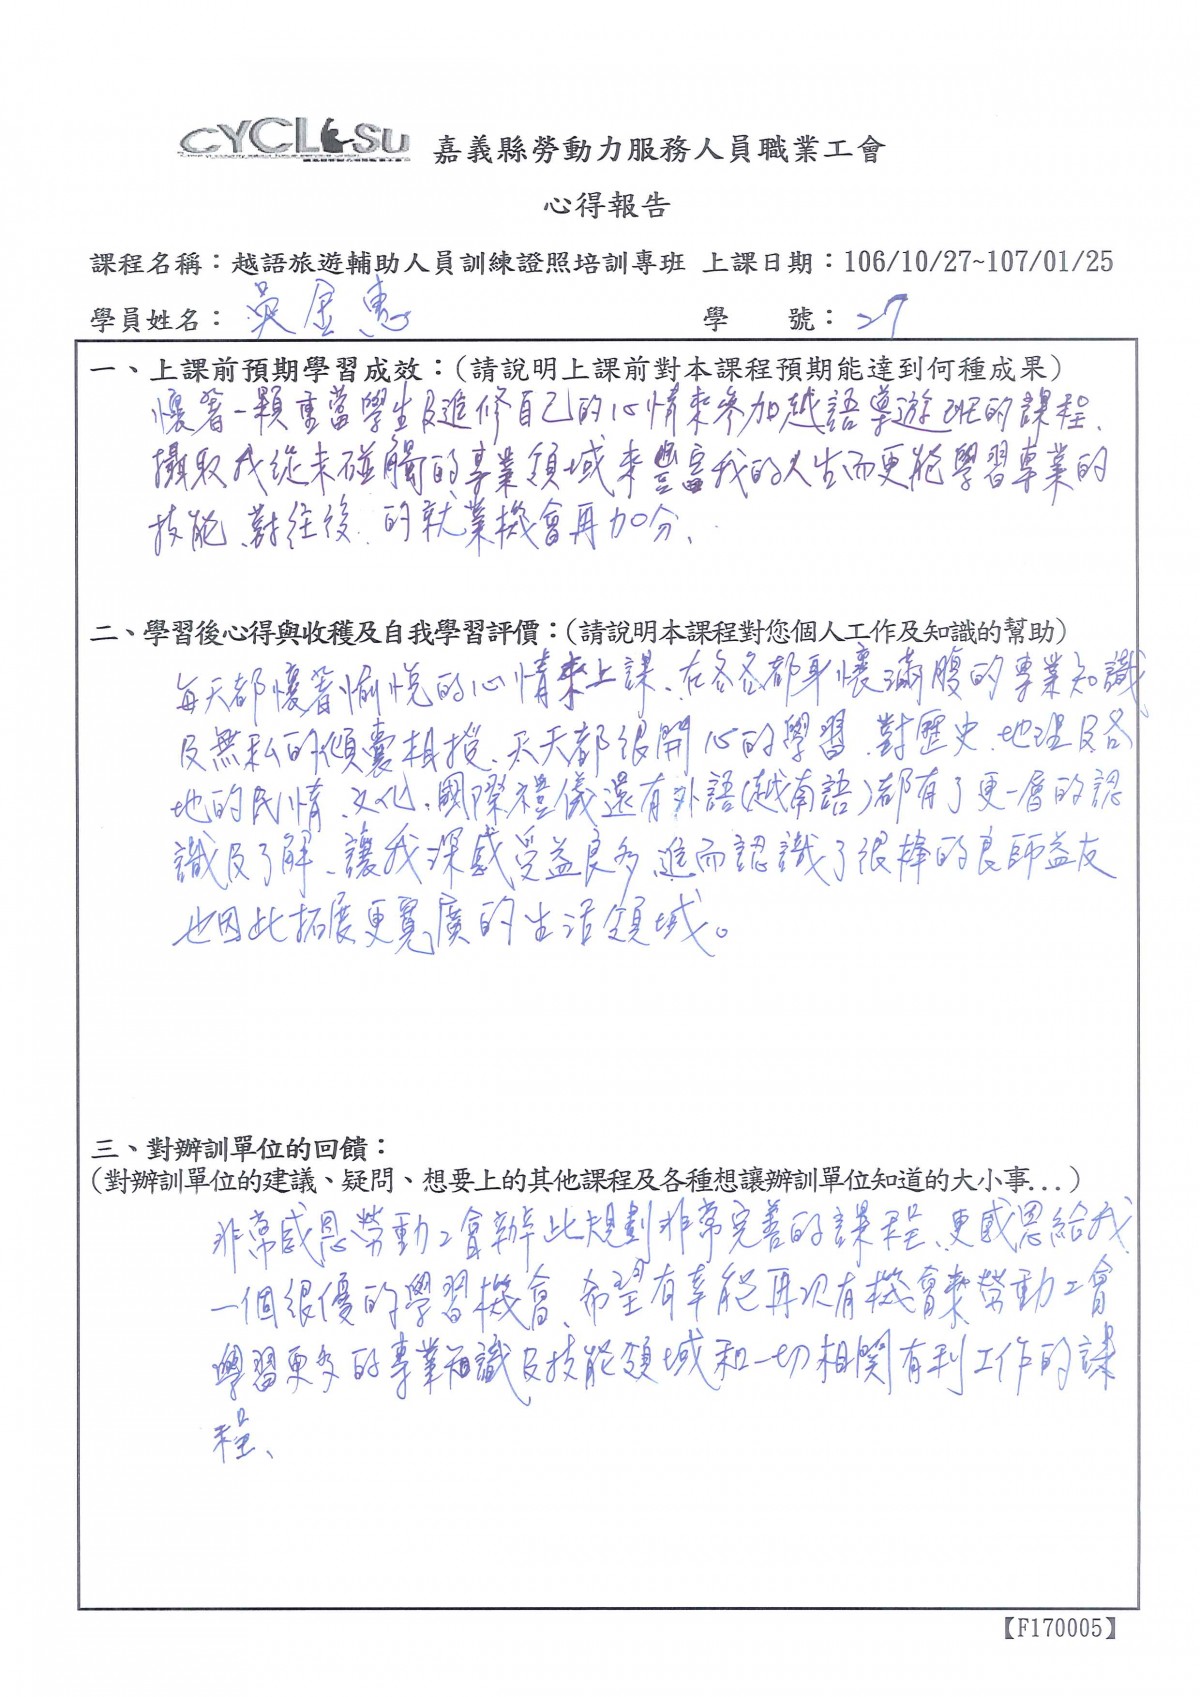 CYCLSU 嘉義縣勞動力服務人員職業工會
心得報告
課程名稱：越語旅遊輔助人員訓練證照培訓專班 上課日期：106/10/27~107/01/25
學員姓名：吳金惠 學 號：27
一、上課前預期學習成效：(請說明上課前對本課程預期能達到何種成果)
懷著一顆重當學生及進修自己的心情來參加越語導遊班的課程、
攝取我從未碰觸的專業領域來豐富我的人生而更能學習專業的
技能、對往後、的就業機會再加分、
二、學習後心得與收穫及自我學習評價：(請說明本課程對您個人工作及知識的幫助)
每天都懷著愉悅的心情來上課、在各各都身懷滿腹的專業知識
及無私的傾囊相授、天天都很開心的學習、對歷史、地理及各
地的民情、文化、國際禮儀還有外語(越南語)都有了更一層的認
識及了解、讓我深感受益良多、進而認識了很棒的良師益友
也因此拓展更寬廣的生活領域。
三、對辦訓單位的回饋：
(對辦訓單位的建議、疑問、想要上的其他課程及各種想讓辦訓單位知道的大小事...)
非常感恩勞動工會辦此規劃非常完善的課程、更感恩給我
一個很優的學習機會、希望有幸能再次有機會來勞動工會
學習更多的專業知識及技能領域和一切相關有利工作的課
程、
【F170005】